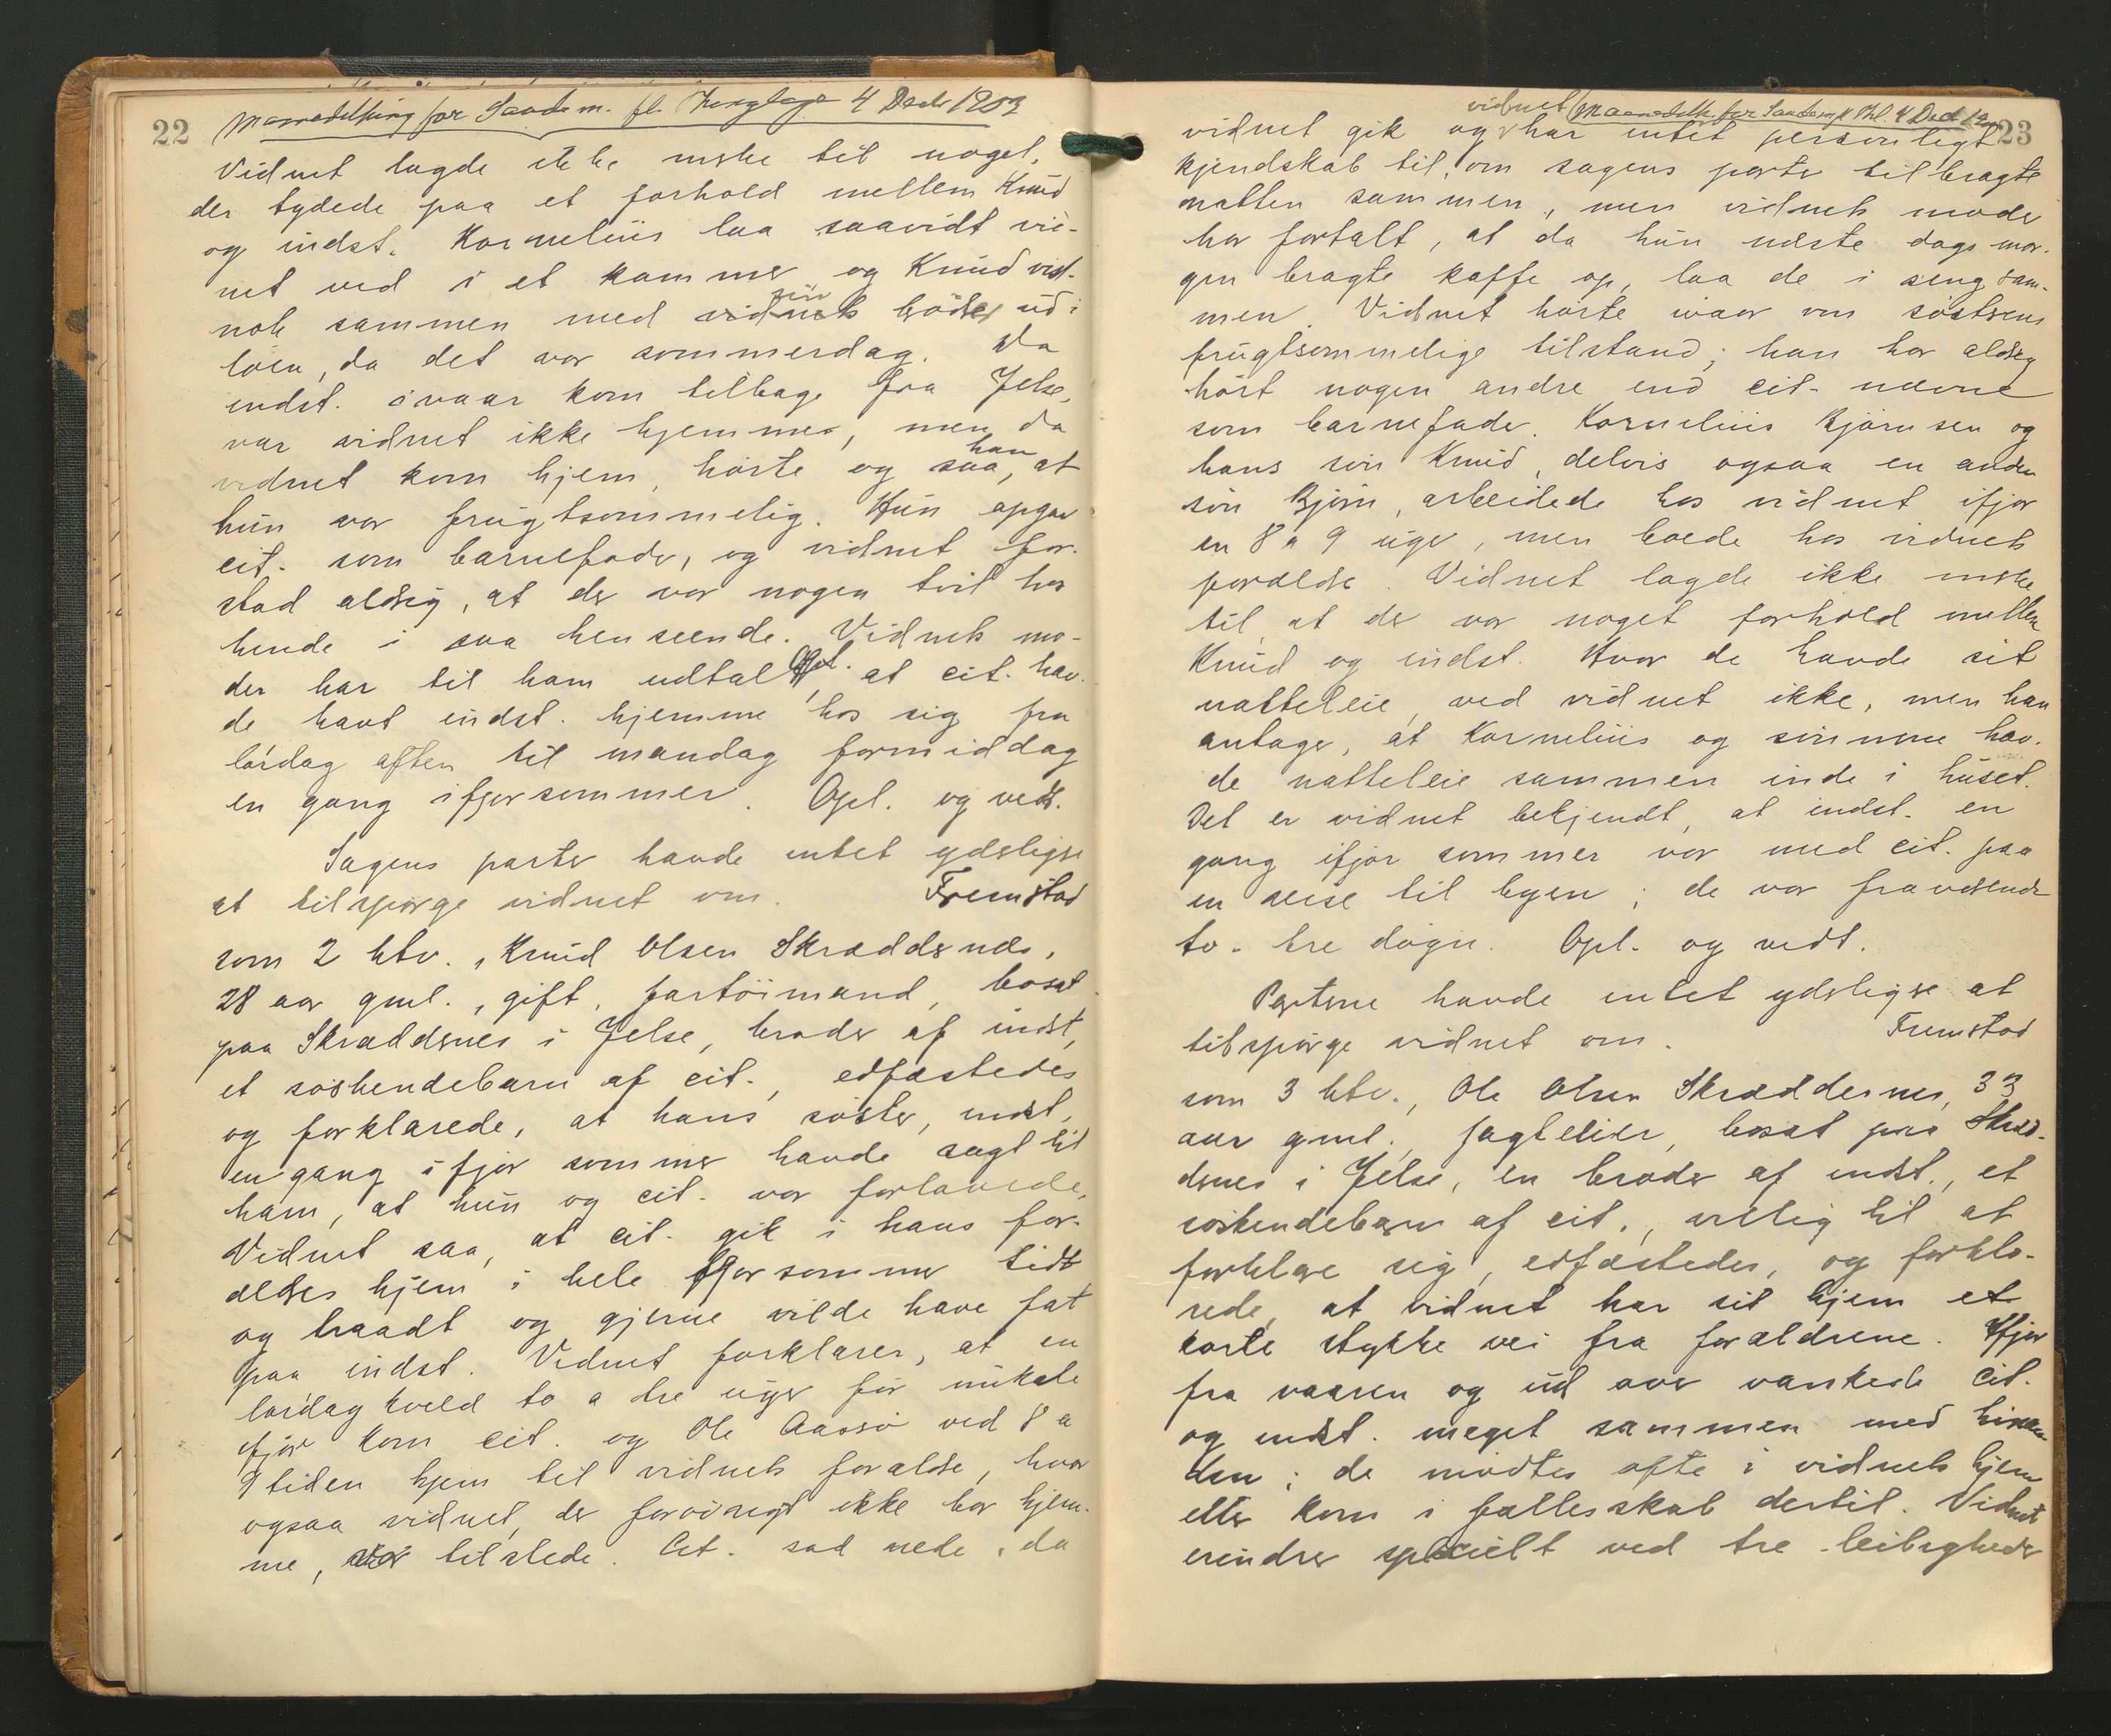 22
Maanedsthing for Sande m. fl. Thinglage 4 Decbr 1903
Vidnet lagde ikke mske til noget,
der tydede paa et forhold mellem Knud
og indst. Kornelius laa saavidt vid-
net ved i et kammer og Knud vist-
nok sammen med vidnets sin broder ud i
löen, da det var sommerdag. Da
indst. ivaar kom tilbage fra Jelse,
var vidnet ikke hjemme, men da
vidnet kom hjem, hörte og saa han, at
hun var frugtsommelig. Hun opgav
cit. som barnefader, og vidnet for-
stod aldrig, at der var nogen tvil hos
hende i saa henseende. Vidnets mo-
der har til ham udtalt, at cit. hav-
de havt indst. hjemme hos sig fra
lördag aften til mandag formiddag
en gang ifjor sommer. Opl. og vedt.
Sagens parter havde intet yderligere
at tilspörge vidnet om. Fremstod
som 2 btv., Knud Olsen Skræddernes,
28 aar gml., gift, fartöimand, bosat
paa Skræddernes i Jelse, broder af indst,
et söskendebarn af cit., edfæstedes
og forklarede, at hans söster, indst,
engang ifjor sommer havde sagt til
ham, at hun og cit. var forlovede,
Vidnet saa, at cit. gik i hans for-
ældres hjem i hele ifjor sommer tidt
og traadt og gjerne vilde have fat
paa indst. Vidnet forklarer, at en
lördag kveld to a tre uger för mikale
ifjor kom cit. og Ole Aasö ved 8 a
9 tiden hjem til vidnets forældre, hvor
ogsaa vidnet, der forövrigt ikke bor hjem-
me, var tilstede. Cit. sad nede, da
23
vidnet Maanedsth. for Sande m fl Thl. 4 Decb 190
vidnet gik og har intet personligt
kjendskab til, om sagens parter tilbragte
natten sammen, men vidnets moder
har fortalt, at da hun næste dags mor-
gen bragte kaffe op, laa de i seng sam-
men. Vidnet hörte ivaar om söstrens
frugtsommelige tilstand; han har aldrig
hört nogen andre end cit. nævne
som barnefader. Kornelius Björnsen og
hans sön Knud, delvis ogsaa en anden
sön Björn, arbeidede hos vidnet ifjor
en 8 a 9 uger, men boede hos vidnets
forældre. Vidnet lagde ikke mske
til, at der var noget forhold mellem
Knud og indst. Hvor de havde sit
natteleie, ved vidnet ikke, men han
antager, at Kornelius og sönnene hav-
de natteleie sammen inde i huset.
Det er vidnet bekjendt, at indst. en
gang ifjor sommer var med cit. paa
en reise til byen; de var fraværende
to - tre dögn. Opl. og vedt.
Parterne havde intet yderligere at
tilspörge vidnet om. Fremstod
som 3 btv., Ole Olsen Skræddernes, 33
aar gml., jagteier, bosat paa Skræd-
dernes i Jelse, en broder af indst., et
söskendebarn af cit., villig til at
forklare sig, edfæstedes, og forkla-
rede, at vidnet har sit hjem et
korte stykke vei fra forældrene. Ifjor
fra vaaren og ud over vankede cit.
og indst. meget sammen med hinan-
den; de mödtes ofte i vidnets hjem
eller kom i fællesskab dertil. Vidnet
erindrer specielt ved tre leiligheder